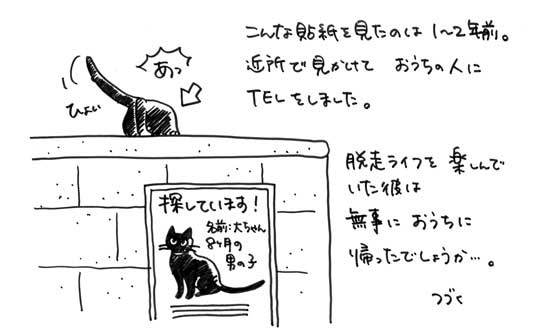 こんな貼紙を見たのは 1〜2年前。
近所で見かけて おうちの人に
TELをしました。
あっ
ひょい
脱走ライフを楽しんで
いた彼は
無事に おうちに
帰ったでしょうか…。
つづく
探しています!
名前:大ちゃん
8ヶ月の
男の子